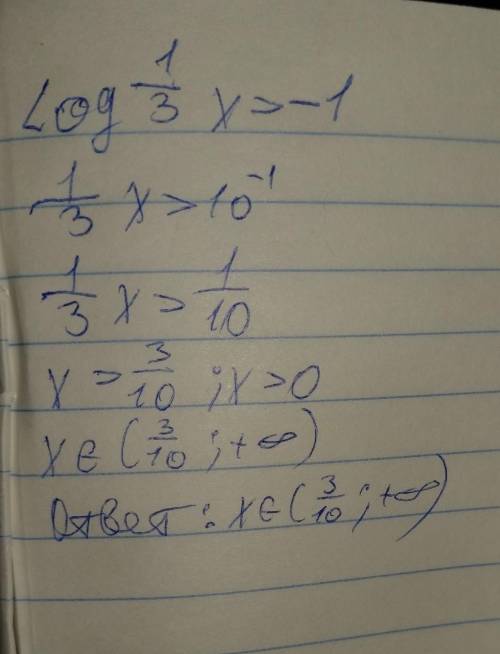 Log 1/3 x > -1
1/3 x > 10⁻¹
1/3 x > 1/10
x > 3/10 ; x > 0
x ∈ (3/10 ; +∞)
Ответ: x ∈ (3/10 ; +∞)